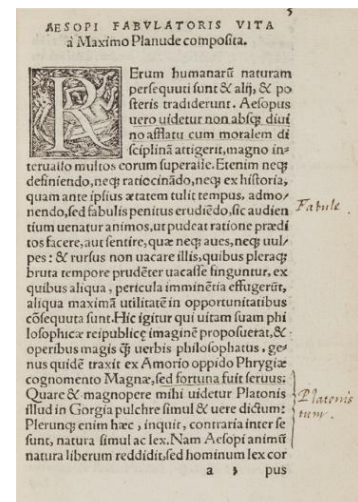 5
AESOPI FABVLATORIS VITA
à Maximo Planude composita.
RErum humanarũ naturam
persequuti sunt & alij, & po
steris tradiderunt. Aesopus
uero uidetur non absq; diui
no afflatu cum moralem di
sciplinã attigerit, magno in=
teruallo multos eorum superasse. Etenim neq;
definiendo, neq; ratiocinãdo, neq; ex historia,
quam ante ipsius ætatem tulit tempus, admo/
nendo, sed fabulis penitus erudiẽdo, sic audien
tium uenatur animos, ut pudeat ratione prædi
tos facere, aut sentire, quæ neq; aues, neq; uul/
pes: & rursus non uacare illis, quibus pleraq;
bruta tempore prudẽter uacasse finguntur, ex
quibus aliqua, pericula imminẽtia effugerũt,
aliqua maximã utilitatẽ in opportunitatibus
cõsequuta sunt. Hic igitur qui uitam suam phi
losophicæ reipublicę imaginẽ proposuerat, &
operibus magis q̃ uerbis philosophatus, ge/
nus quidẽ traxit ex Amorio oppido Phrygiæ
cognomento Magnæ, sed fortuna fuit seruus:
Quare & magnopere mihi uidetur Platonis
illud in Gorgia pulchre simul & uere dictum:
Plerunq; enim hæc, inquit, contraria inter se
sunt, natura simul ac lex. Nam Aesopi animũ
natura liberum reddidit, sed hominum lex cor
a 3 pus
Fabule
Platonis
tum.